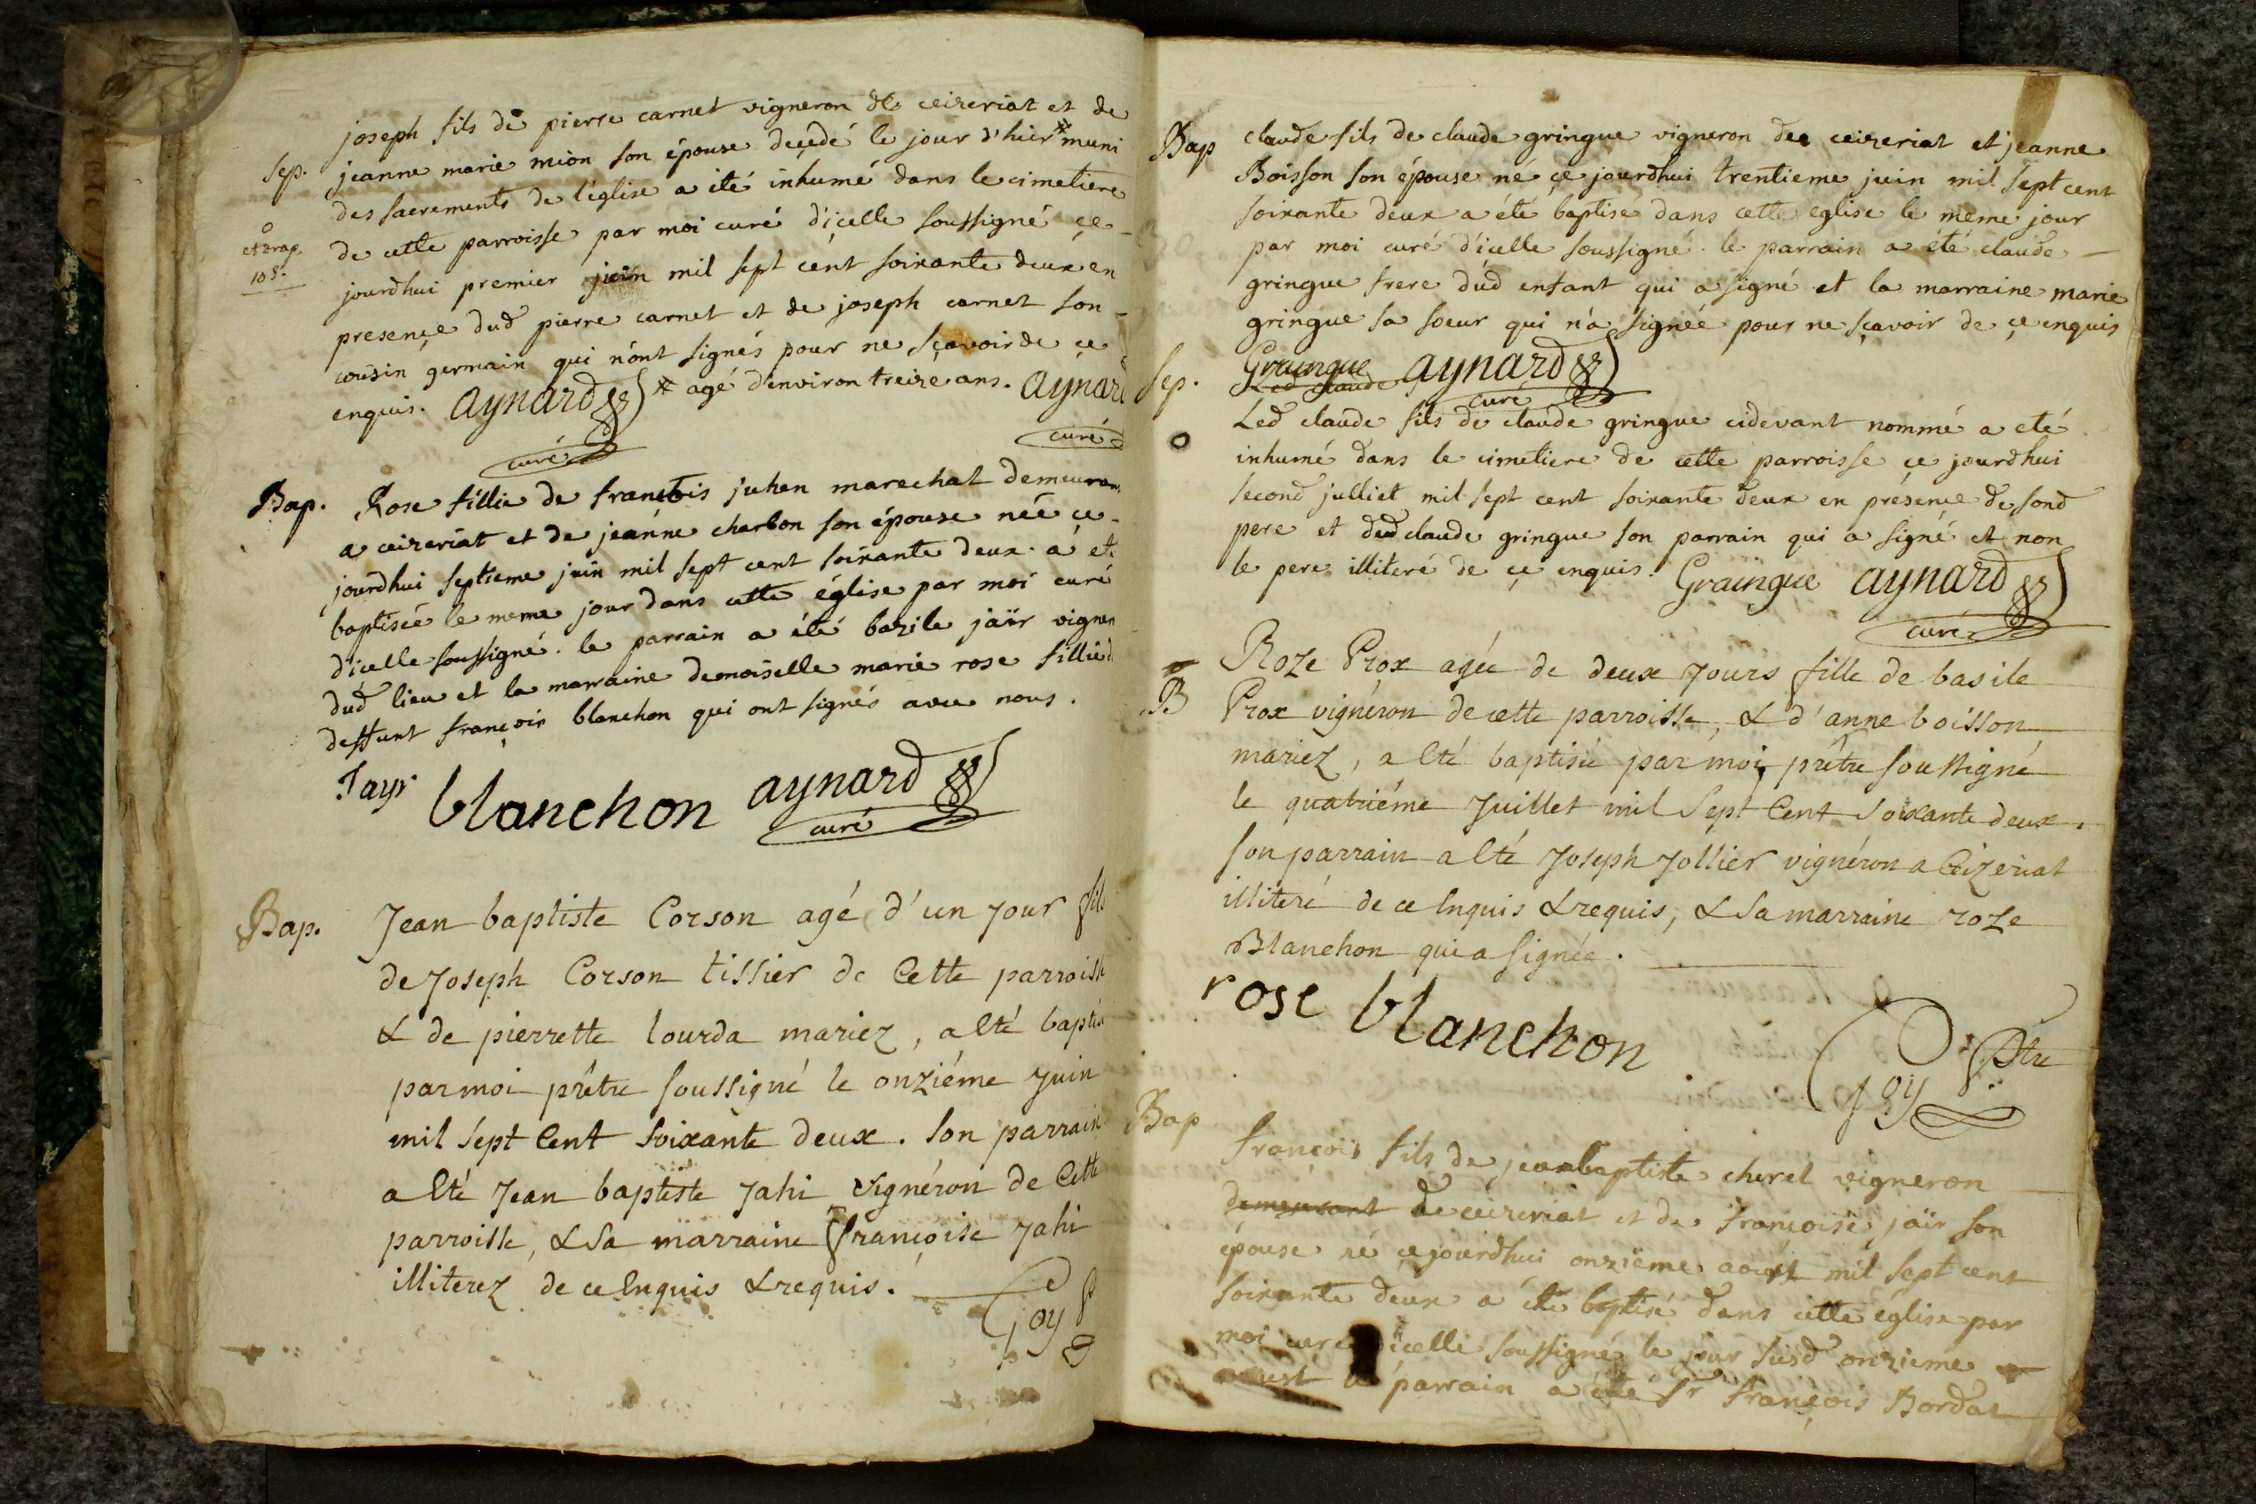 joseph fils de pierre carnet vigneron de ceizeriat et de
Sep.
jeanne marie mion son épouse deçedé le jour d'hier * muni
des sacrements de l'église a été inhumé dans le cimetiere
de cette parroisse par moi curé d'içelle soussigné çe
jourdhui premier juin mil sept cent soixante deux en
presençe dud pierre carnet et de joseph carnet son
cousin germain qui n'ont signés pour ne sçavoir de çe
enquis. aynard * agé d'environ treize ans. aynard
curé curé
Bap.
Rose fillie de françois juhen marechat demeuran
a ceizeriat et de jeanne charbon son épouse née çe
jourdhui septieme juin mil sept cent soixante deux a eté
baptisée le meme jour dans cette église par moi curé
d'icelle soussigné. le parrain a été bazile jaïr vigner
dud lieu et la marraine demoiselle marie rose fillie d
deffunt françois blanchon qui ont signés avec nous.
Jayr blanchon aynard
curé
Bap.
Jean baptiste Corson agé d'un jour fils
de Joseph Corson tissier de Cette parroisse
& de pierrette lourda mariez, a Eté baptisé
par moi prêtre soussigné le onziéme Juin
mil sept Cent soixante deux. son parrain
a Eté Jean baptiste Jahi vignéron de Cette
parroisse, & sa marraine françoise Jahi
illiterez de ce Enquis & requis.
Goy
Bap
claude fils de claude gringue vigneron de ceizeriat et jeanne
Boisson son épouse né çe jourdhui trentieme juin mil sept cent
soixante deux a été baptisé dans cette eglise le meme jour
par moi curé d'icelle soussigné. le parrain a été claude
gringue frere dud enfant qui a signé et la marraine marie
gringue sa soeur qui n'a signée pour ne sçavoir de çe enquis
Graingue aynard
Sep.
Led claude
curé
Led claude fils de claude gringue cidevant nommé a eté
inhumé dans le cimetiere de cette parroisse çe jourdhui
second julliet mil sept cent soixante deux en présençe de sond
pere et dud claude gringue son parrain qui a signé et non
le pere illiteré de çe enquis. Graingue aynard
curé
B
Roze Prox agée de deux jours fille de basile
Prox vignéron de cette parroisse, & d'anne boisson
mariez, a Eté baptisée par moi prêtre soussigné
le quatriéme Juillet mil Sept Cent Soixante deux.
son parrain a Eté Joseph Jollier vignéron a Ceizeriat
illiteré de ce Enquis & requis, & sa marraine roze
Blanchon qui a signée.
rose blanchon
Goy Ptre
Bap
françois fils de jeanbaptiste cheret vigneron
demeurant de ceizeriat et de françoise jaïr son
épouse né çejourdhui onzieme aoust mil sept cent
soixante deux a été baptisé dans cette église par
moi curé d'icelle soussigné le jour susd onzieme
aoust le parrain a été Sr françois Bordat